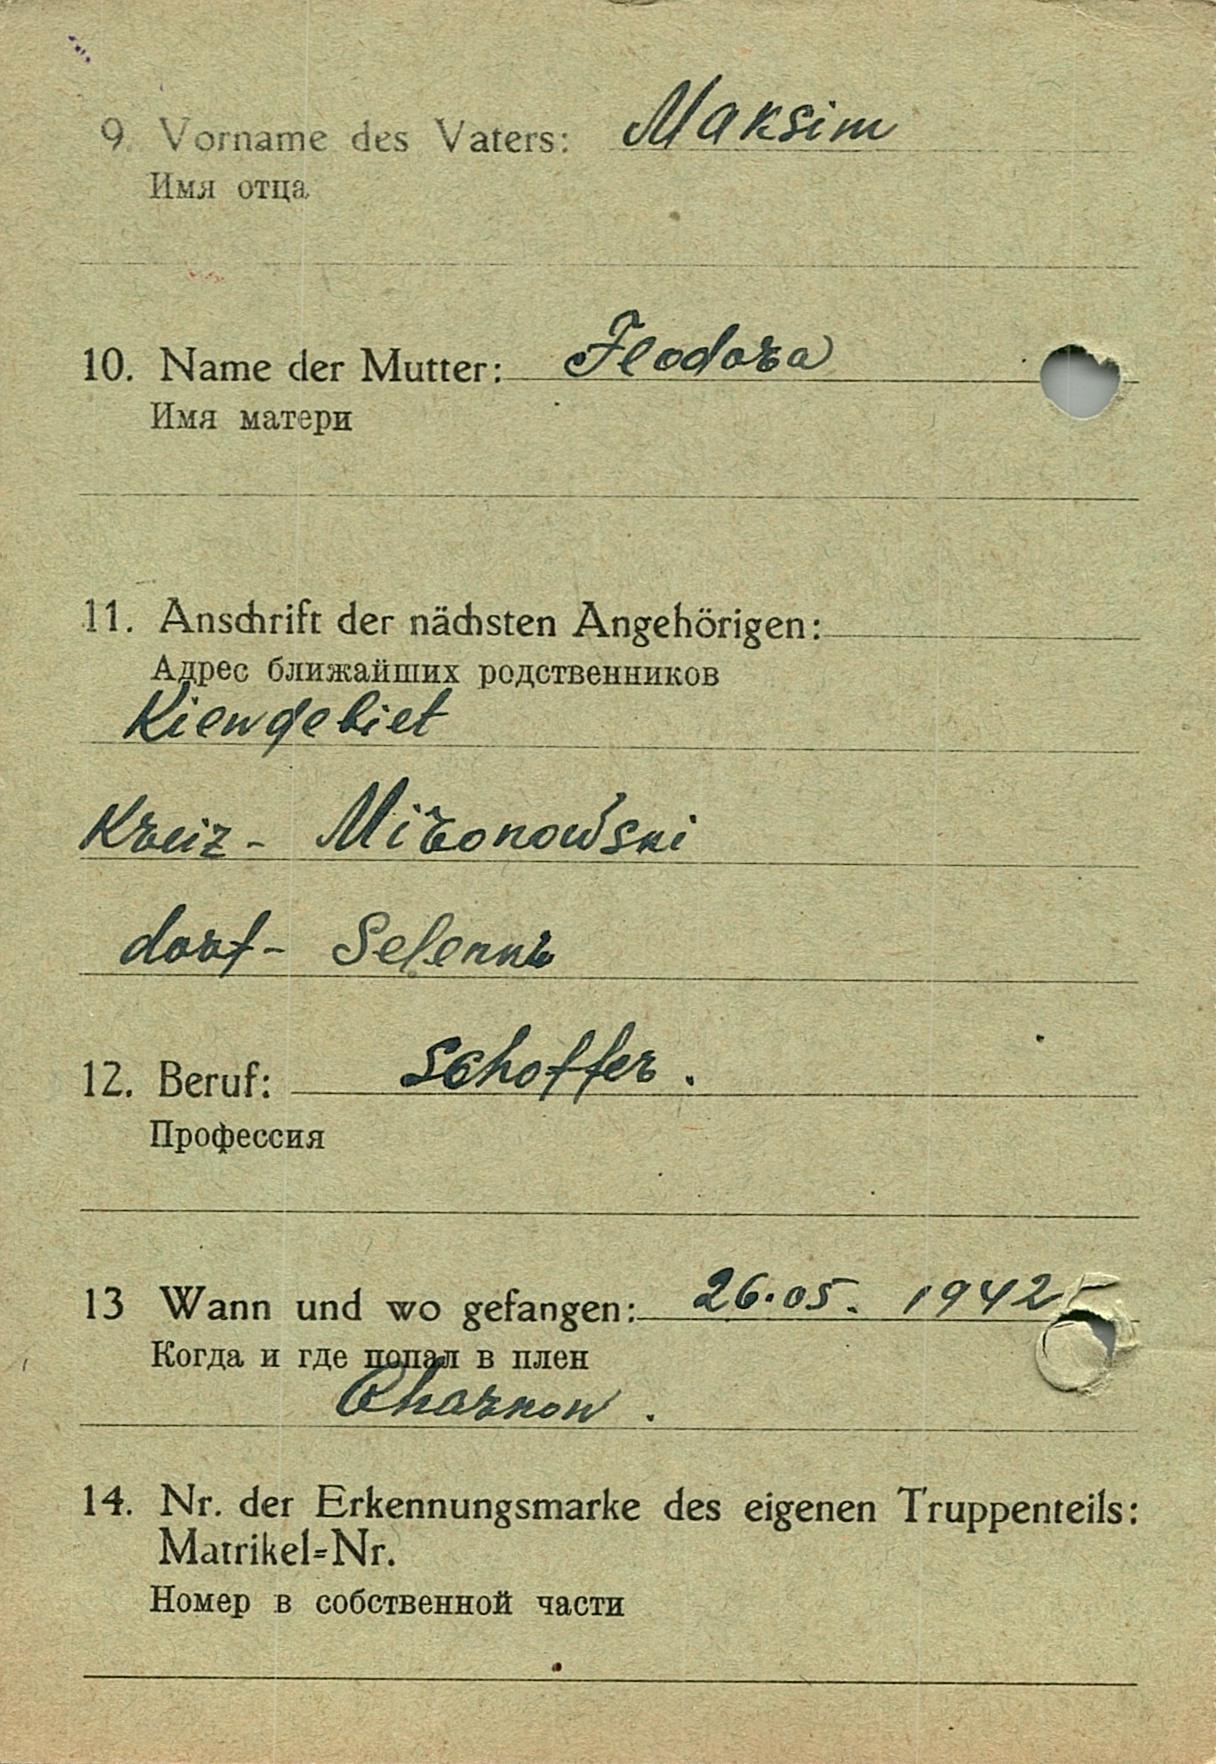 9. Vorname des Vaters: Maksim
Имя отца
10. Name der Mutter: Feodora
Имя матери
11. Anschrift der nächsten Angehörigen:
Адрес ближайших родственников
Kiewgebiet
Kreiz - Mironowski
dorf -
12. Beruf: Schoffer.
Профессия
13 Wann und wo gefangen: 26.05. 1942
Когда и где попал в плен
Charkow.
14. Nr. der Erkennungsmarke des eigenen Truppenteils:
Matrikel-Nr.
Номер в собственной части